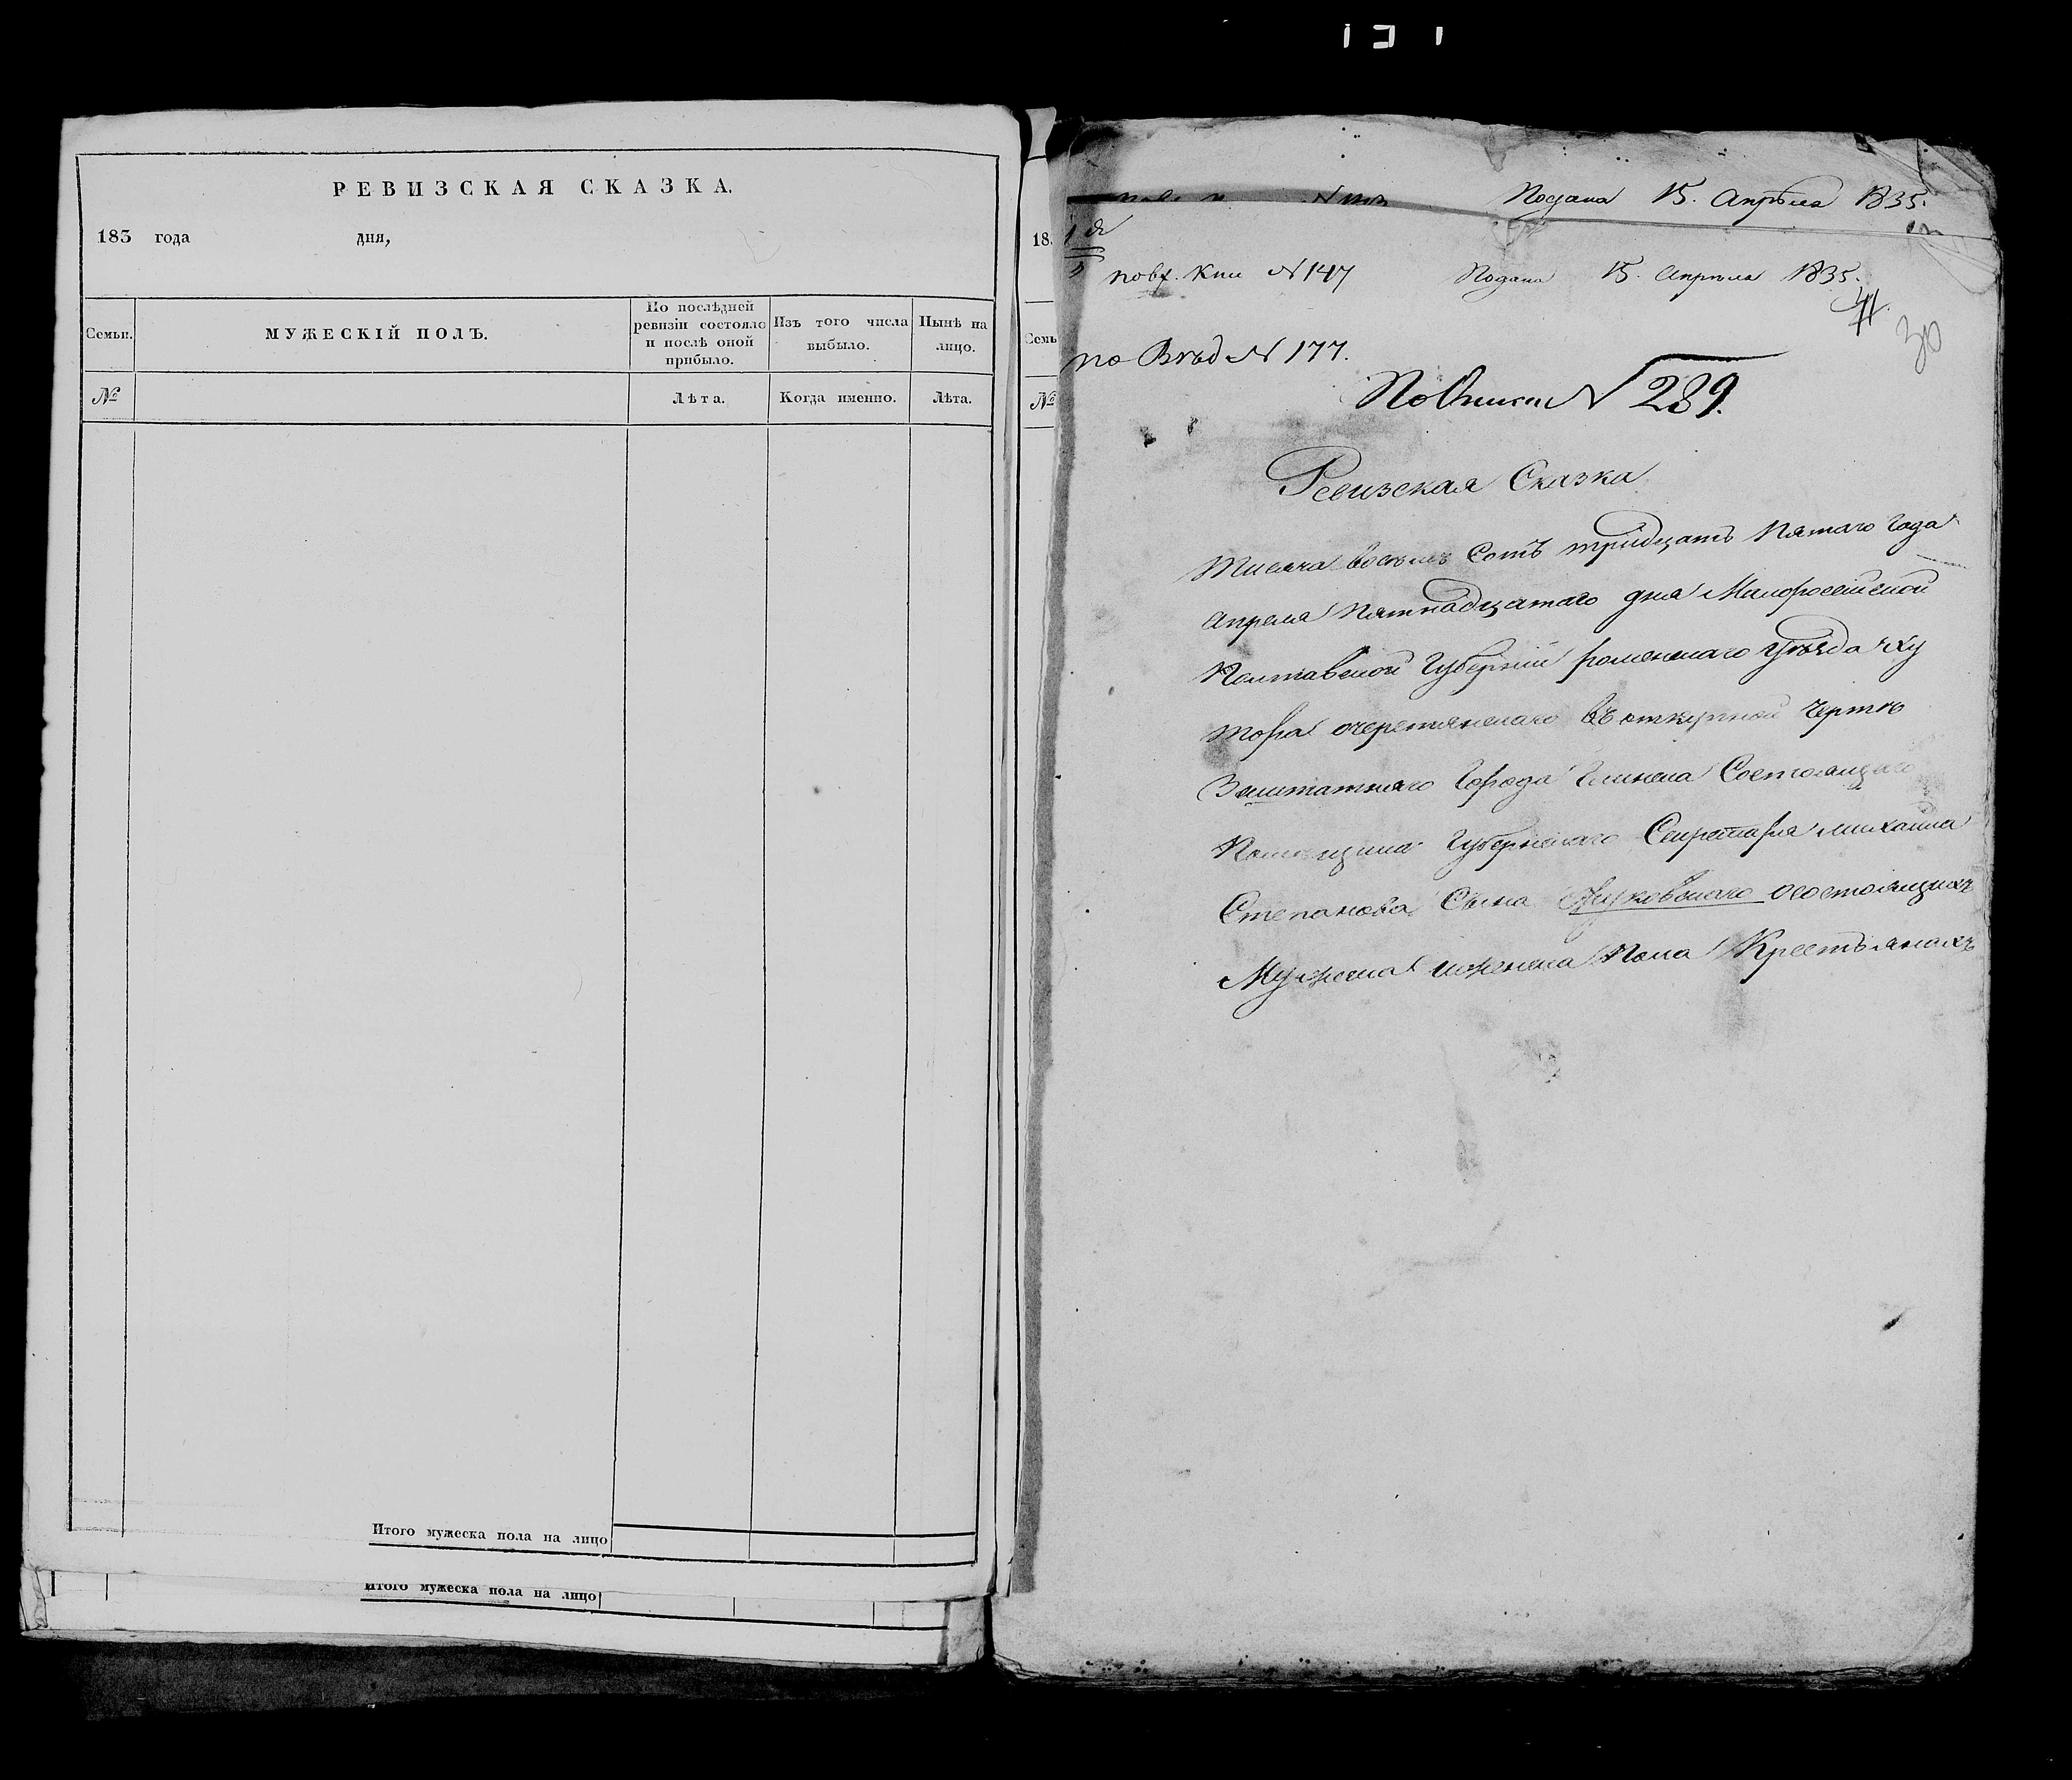 РЕВИЗСКАЯ СКАЗКА.
183 года дня,
Семьи.
МУЖЕСКІЙ ПОЛЪ.
По послѣдней ревизіи состояло и послѣ оной прибыло.
Изъ того числа выбыло.
Нынѣ на лицо.
№
Лѣта.
Когда именно.
Лѣта.
Итого мужеска пола на лицо
Итого мужеска пола на лицо
18
Семь
№
Подана 15. Апрѣля 1835.
по вх. Кни N 147 Подана 15. Апрѣля 1835.
30
по Вѣд N 177.
По Описи N 289.
Ревизская Сказка
тисяча восемъ Сотъ тридцать Пятаго Года
Апреля Пятнадцатаго дня Малоросейской
Полтавской Губерніи роменскаго уѣзда Ху
тора очеретянскаго въ откупной Чертѣ
Заштатнаго Города Глинска Состоящаго
Помѣщика Губернскаго Секретаря михаила
Степанова Сына Жуковскаго осостоящихъ
Мужеска иженска Пола Крестьянахъ